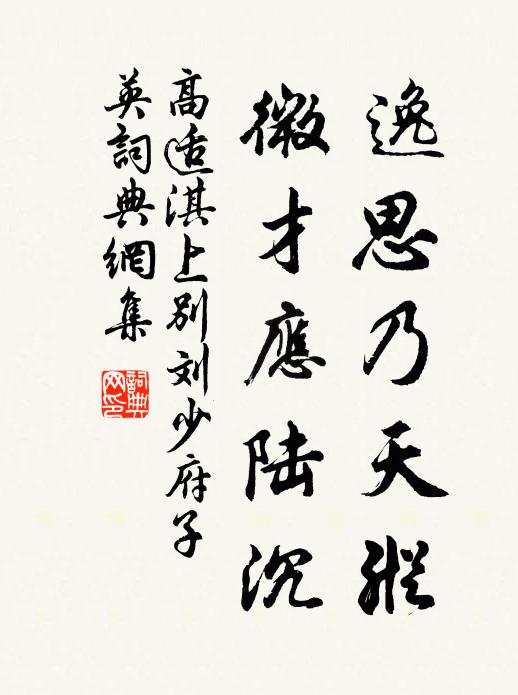 逸思乃天纵
微才應陆沉
高适淇上别刘少府子
英詞典網集
詞典
网印